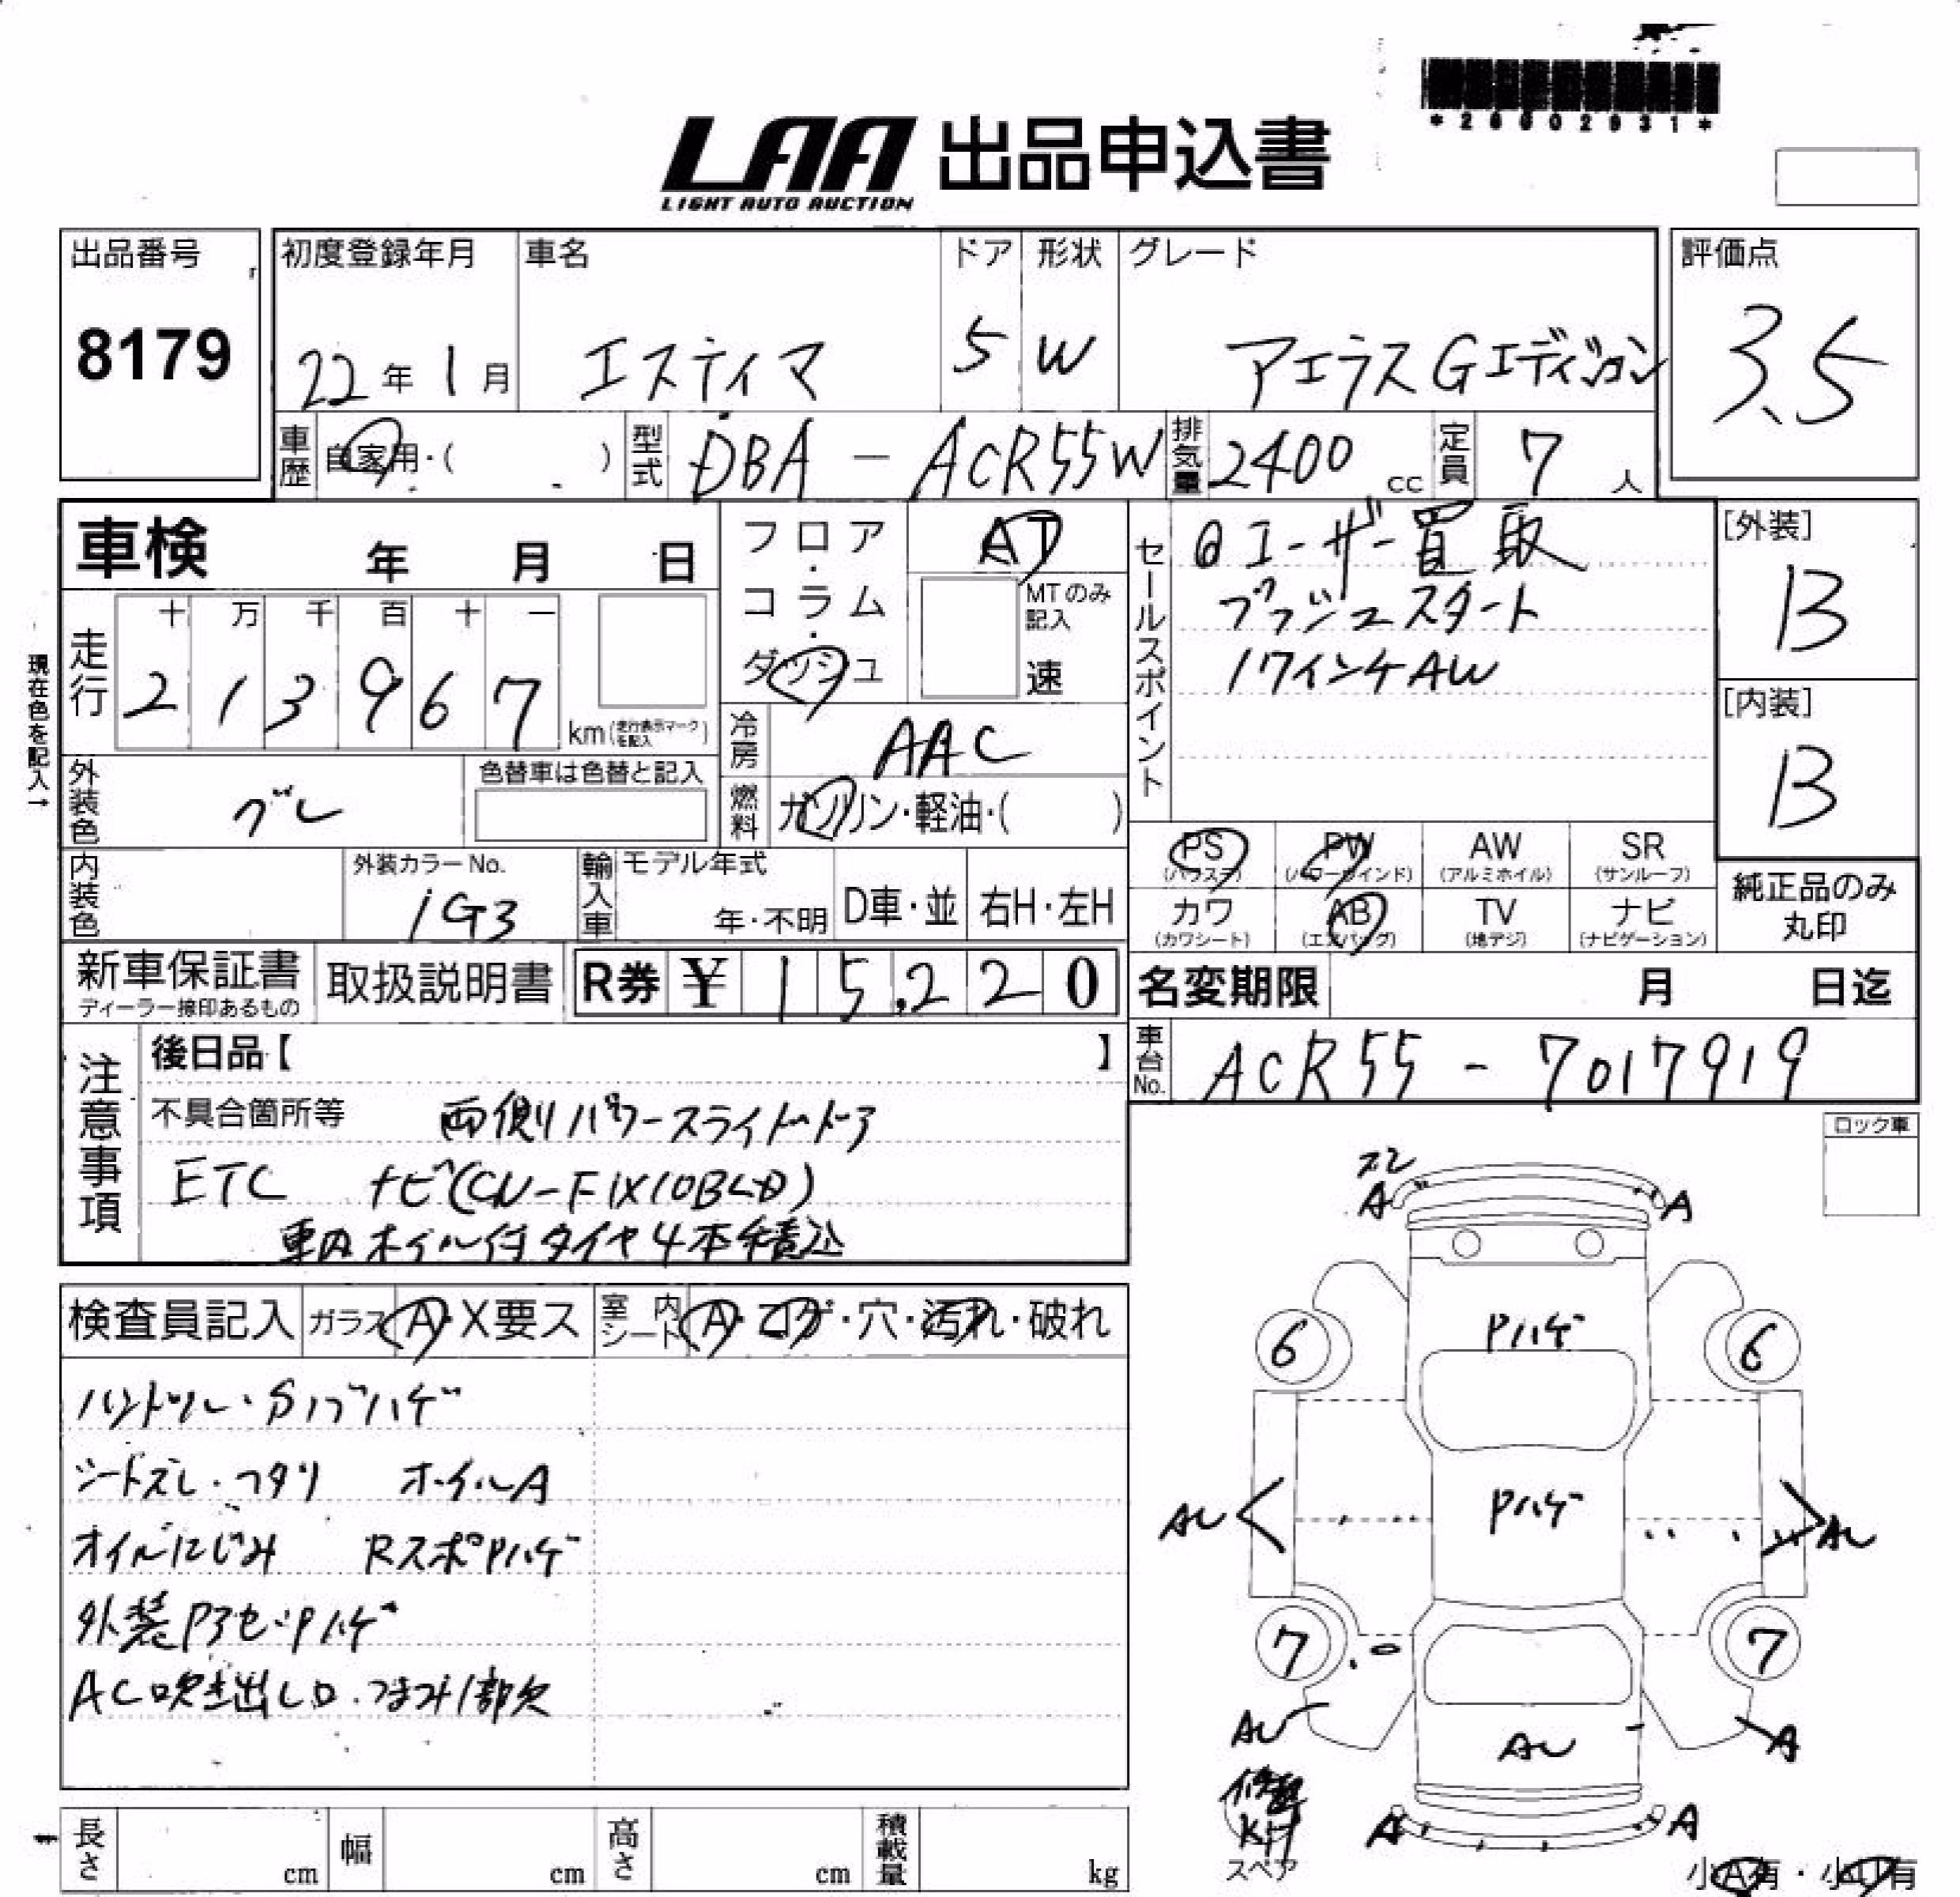 *20602931*
LAA 出品申込書
LIGHT AUTO AUCTION
出品番号 初度登録年月 車名 ドア 形状 グレード 評価点
8179 22年1月 エスティマ 5 W アエラスGエディション 3.5
車歴 自家用・( ) 型式 DBA-ACR55W 排気量 2400cc 定員 7人
車検 年 月 日
フロア・コラム・ダッシュ AT
MTのみ記入 速
セールスポイント
ユーザー買取
プッシュスタート
17インチAW
[外装] B
[内装] B
現在色を記入→
走行 十 万 千 百 十 一
2 1 3 9 6 7 km(走行表示マークを記入)
冷房 AAC
外装色 グレ 色替車は色替と記入
燃料 ガソリン・軽油・( )
内装色 外装カラーNo. 1G3
輸入車 モデル年式 年・不明 D車・並 右H・左H
PS (パワステ) PW (パワーウインド) AW (アルミホイル) SR (サンルーフ)
カワ (カワシート) AB (エアバッグ) TV (地デジ) ナビ (ナビゲーション)
純正品のみ丸印
新車保証書 ディーラー捺印あるもの 取扱説明書 R券 ¥ 15,220
名変期限 月 日迄
車台No. ACR55-7017919
注意事項
後日品【 】
不具合箇所等 両側パワースライドドア
ETC ナビ(CN-F1X10BLD)
車内ホイル付タイヤ4本積込
ロック車
検査員記入 ガラス A・X要ス 室内シート A・コゲ・穴・汚れ・破れ
ハンドル・Sノブハゲ
シートズレ・ヘタリ ホイルA
オイルにじみ RスポPハゲ
外装Pアせ・Pハゲ
AC吹き出し口・つまみ1部欠
ズレ
A A
Pハゲ
6 6
Pハゲ
AU AU
7 7
AU AU A
修理
Kit
スペア
A A
小A有・小U有
長さ cm 幅 cm 高さ cm 積載量 kg